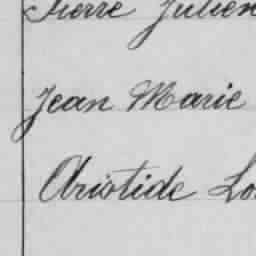 Pierre Julien
Jean Marie
Aristide